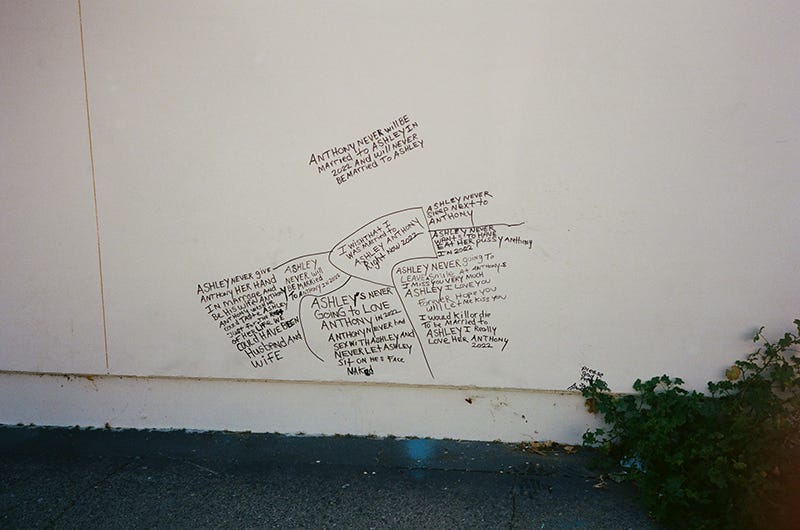 ANTHONY NEVER will BE
MARRIED TO ASHLEY IN
2022 AND will NEVER
BE MARRIED TO ASHLEY
I wish THAT I
WAS MARRIED TO
ASHLEY ANTHONY
Right NOW 2022
ASHLEY NEVER
Sleep NEXT TO
ANTHONY
ASHLEY NEVER
WANTS TO HAVE
EAT HER PUSSY Anthony
IN 2022
ASHLEY NEVER give
ANTHONY HER HAND
IN MARRIAGE AND
BE His Wife ANTHONY
OF HER Life WE
COULD HAVE BEEN
HUSBAND AND
WIFE
ASHLEY
NEVER will
BE MARRIED
TO ANTHONY IN 2022
ASHLEY'S NEVER
GOING TO LOVE
ANTHONY IN 2022
ANTHONY NEVER HAD
SEX WITH ASHLEY AND
NEVER LET ASHLEY
SIT ON HES FACE
NAKED
ASHLEY NEVER going To
LEAVE Smile AT ANTHONY.S
I MISS YOU VERY MUCH
ASHLEY I LOVE YOU
Forever Hope you
will LET ME Kiss you
I would Kill or die
To BE MARRIED TO
ASHLEY I Really
LOVE HER ANTHONY
2022